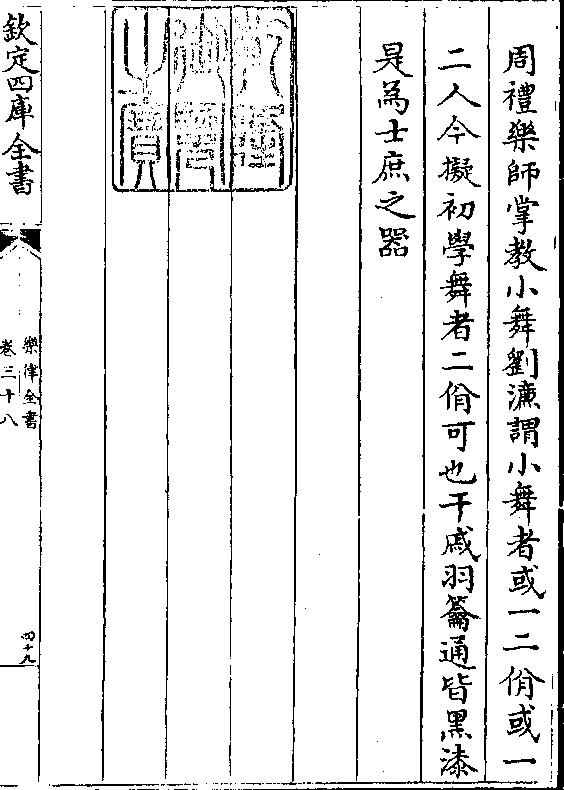 周禮樂師掌教小舞劉濂謂小舞者或一二佾或一
二人今擬初學舞者二佾可也干戚羽籥通皆黑漆
是為士庶之器
乾隆
御覽
之寶
欽定四庫全書
樂律全書
卷三十八
四十九